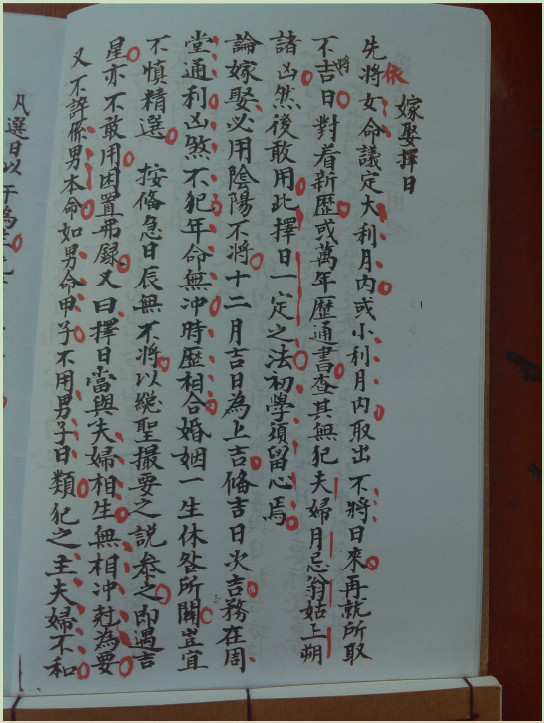 嫁娶擇日
先將依女命議定大利月內或小利月內取出不將日來再就所取
不將吉日對着新歷或萬年歷通書查其無犯夫婦月忌翁姑上朔
諸凶然後敢用此擇日一定之法初學須留心焉
論嫁娶必用陰陽不將十二月吉日為上吉俻吉日次吉務在周
堂通利凶煞不犯年命無冲時歷相合婚姻一生休咎所關豈宜
不慎精選 按俻急日辰無不將以繼聖撮要之說叅之即遇吉
星亦不敢用因置弗録又曰擇日當與夫婦相生無相冲尅為要
又不許係男本命如男命甲子不用男子日類犯之主夫婦不和
凡選日以干為